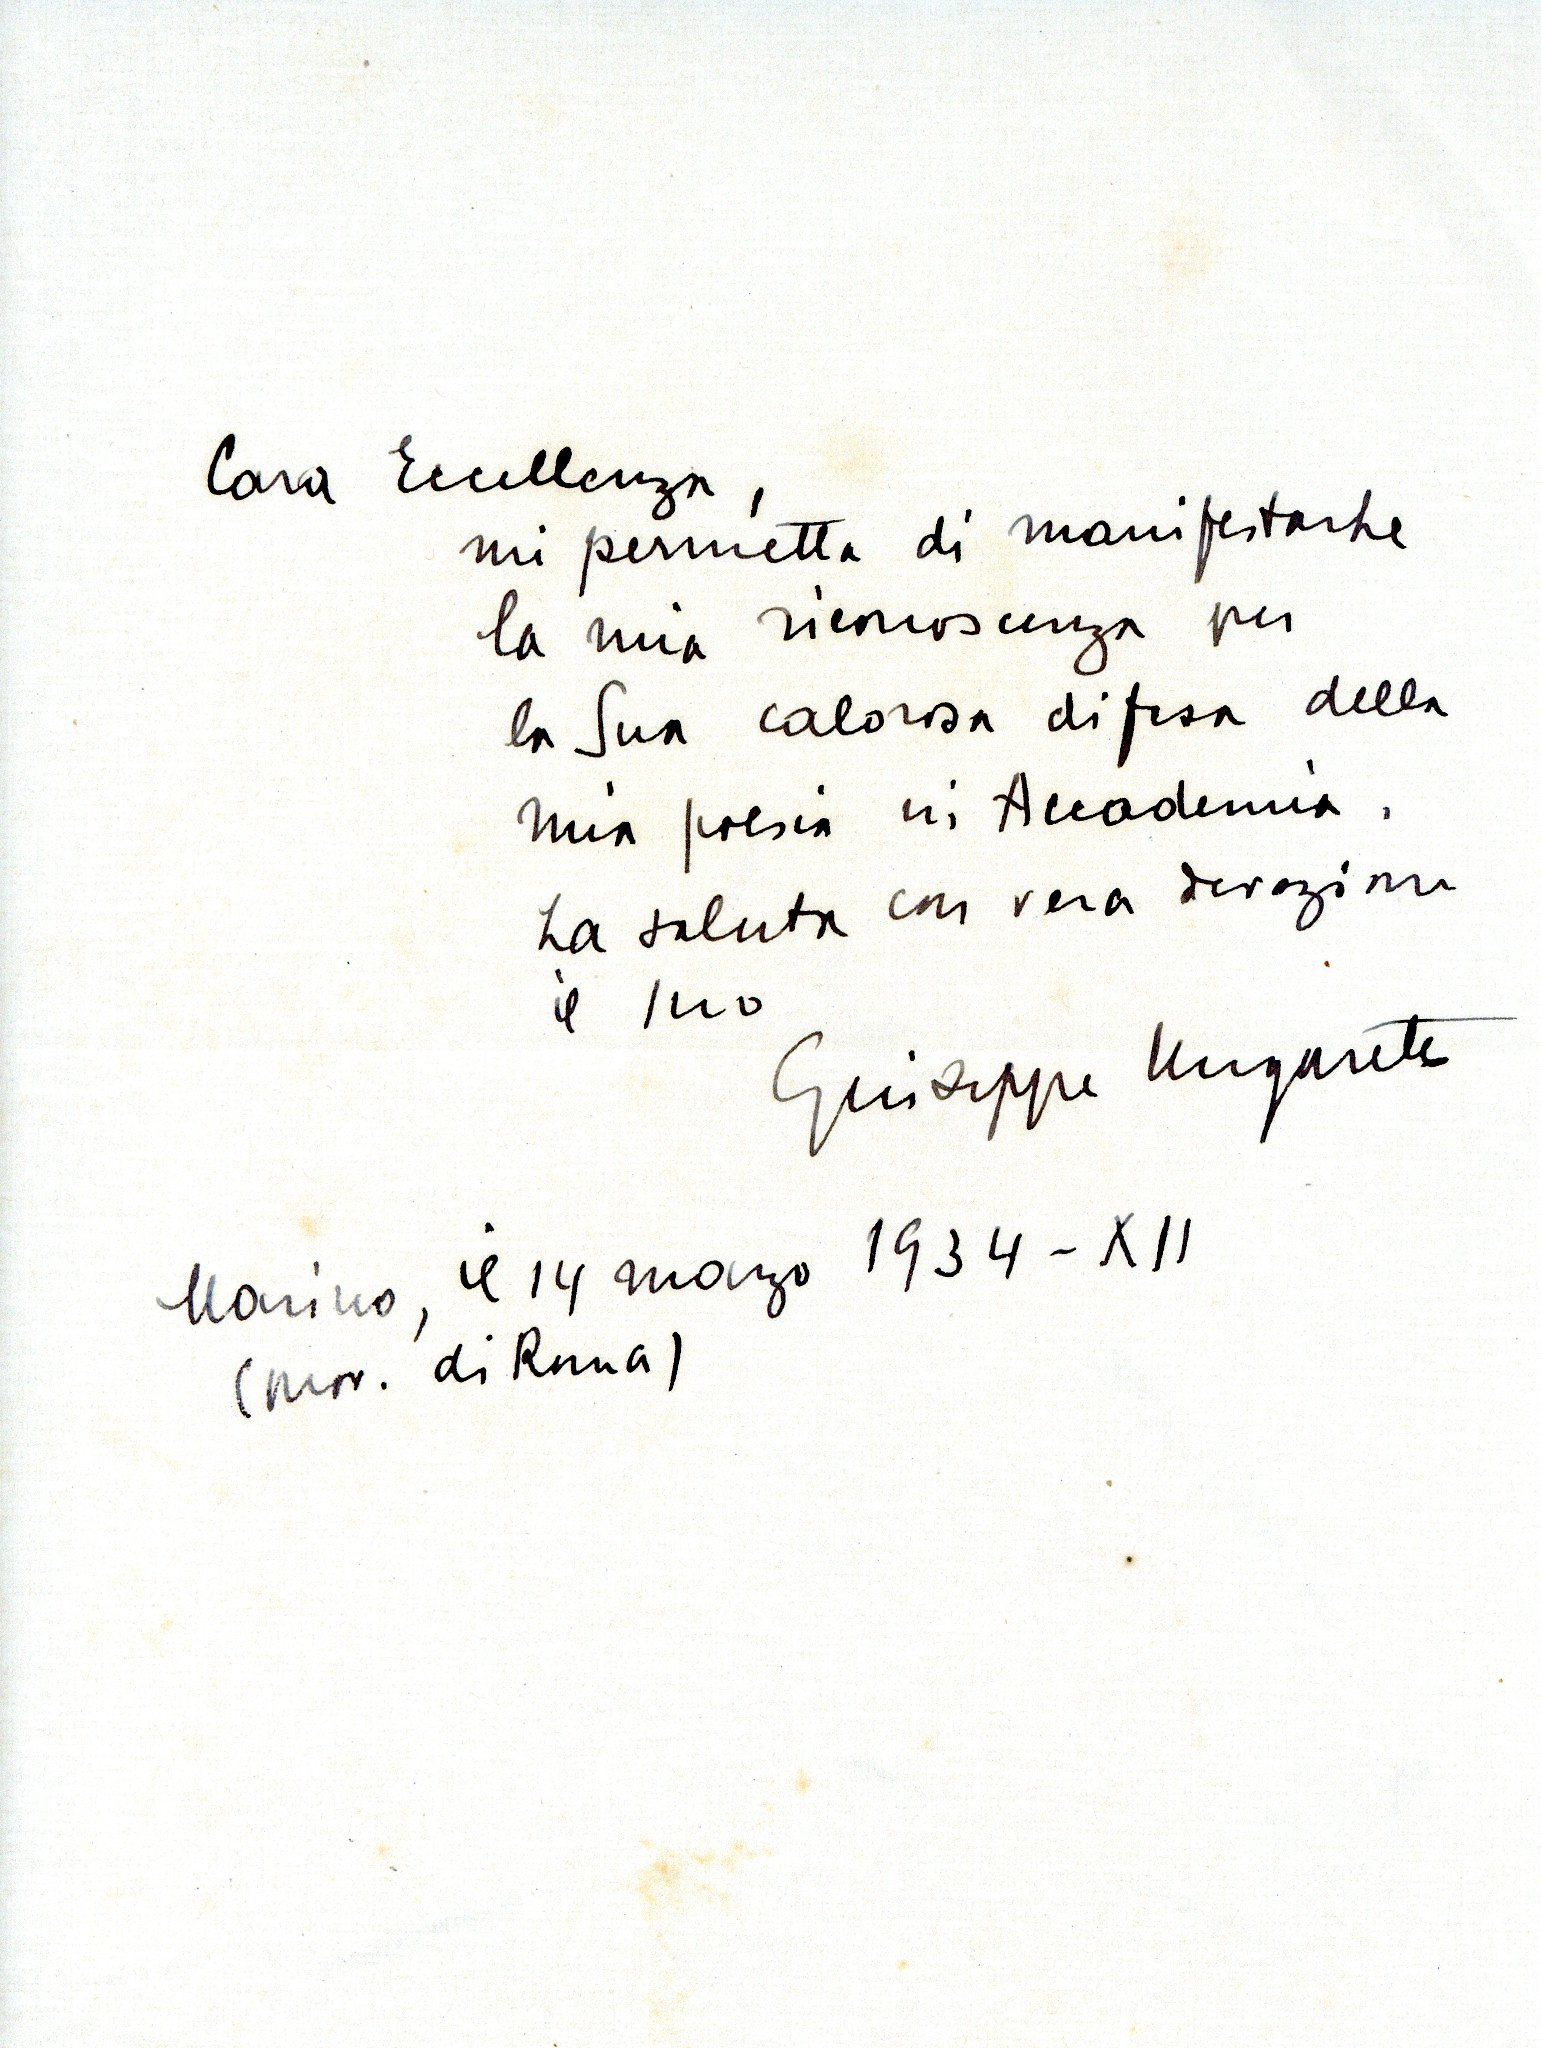 Cara Eccellenza,
mi permetta di manifestarLe
la mia riconoscenza per
la Sua calorosa difesa della
mia poesia in Accademia.
La saluta con vera devozione
il suo
Giuseppe Ungaretti
Marino, il 14 marzo 1934-XII
(prov. di Roma)